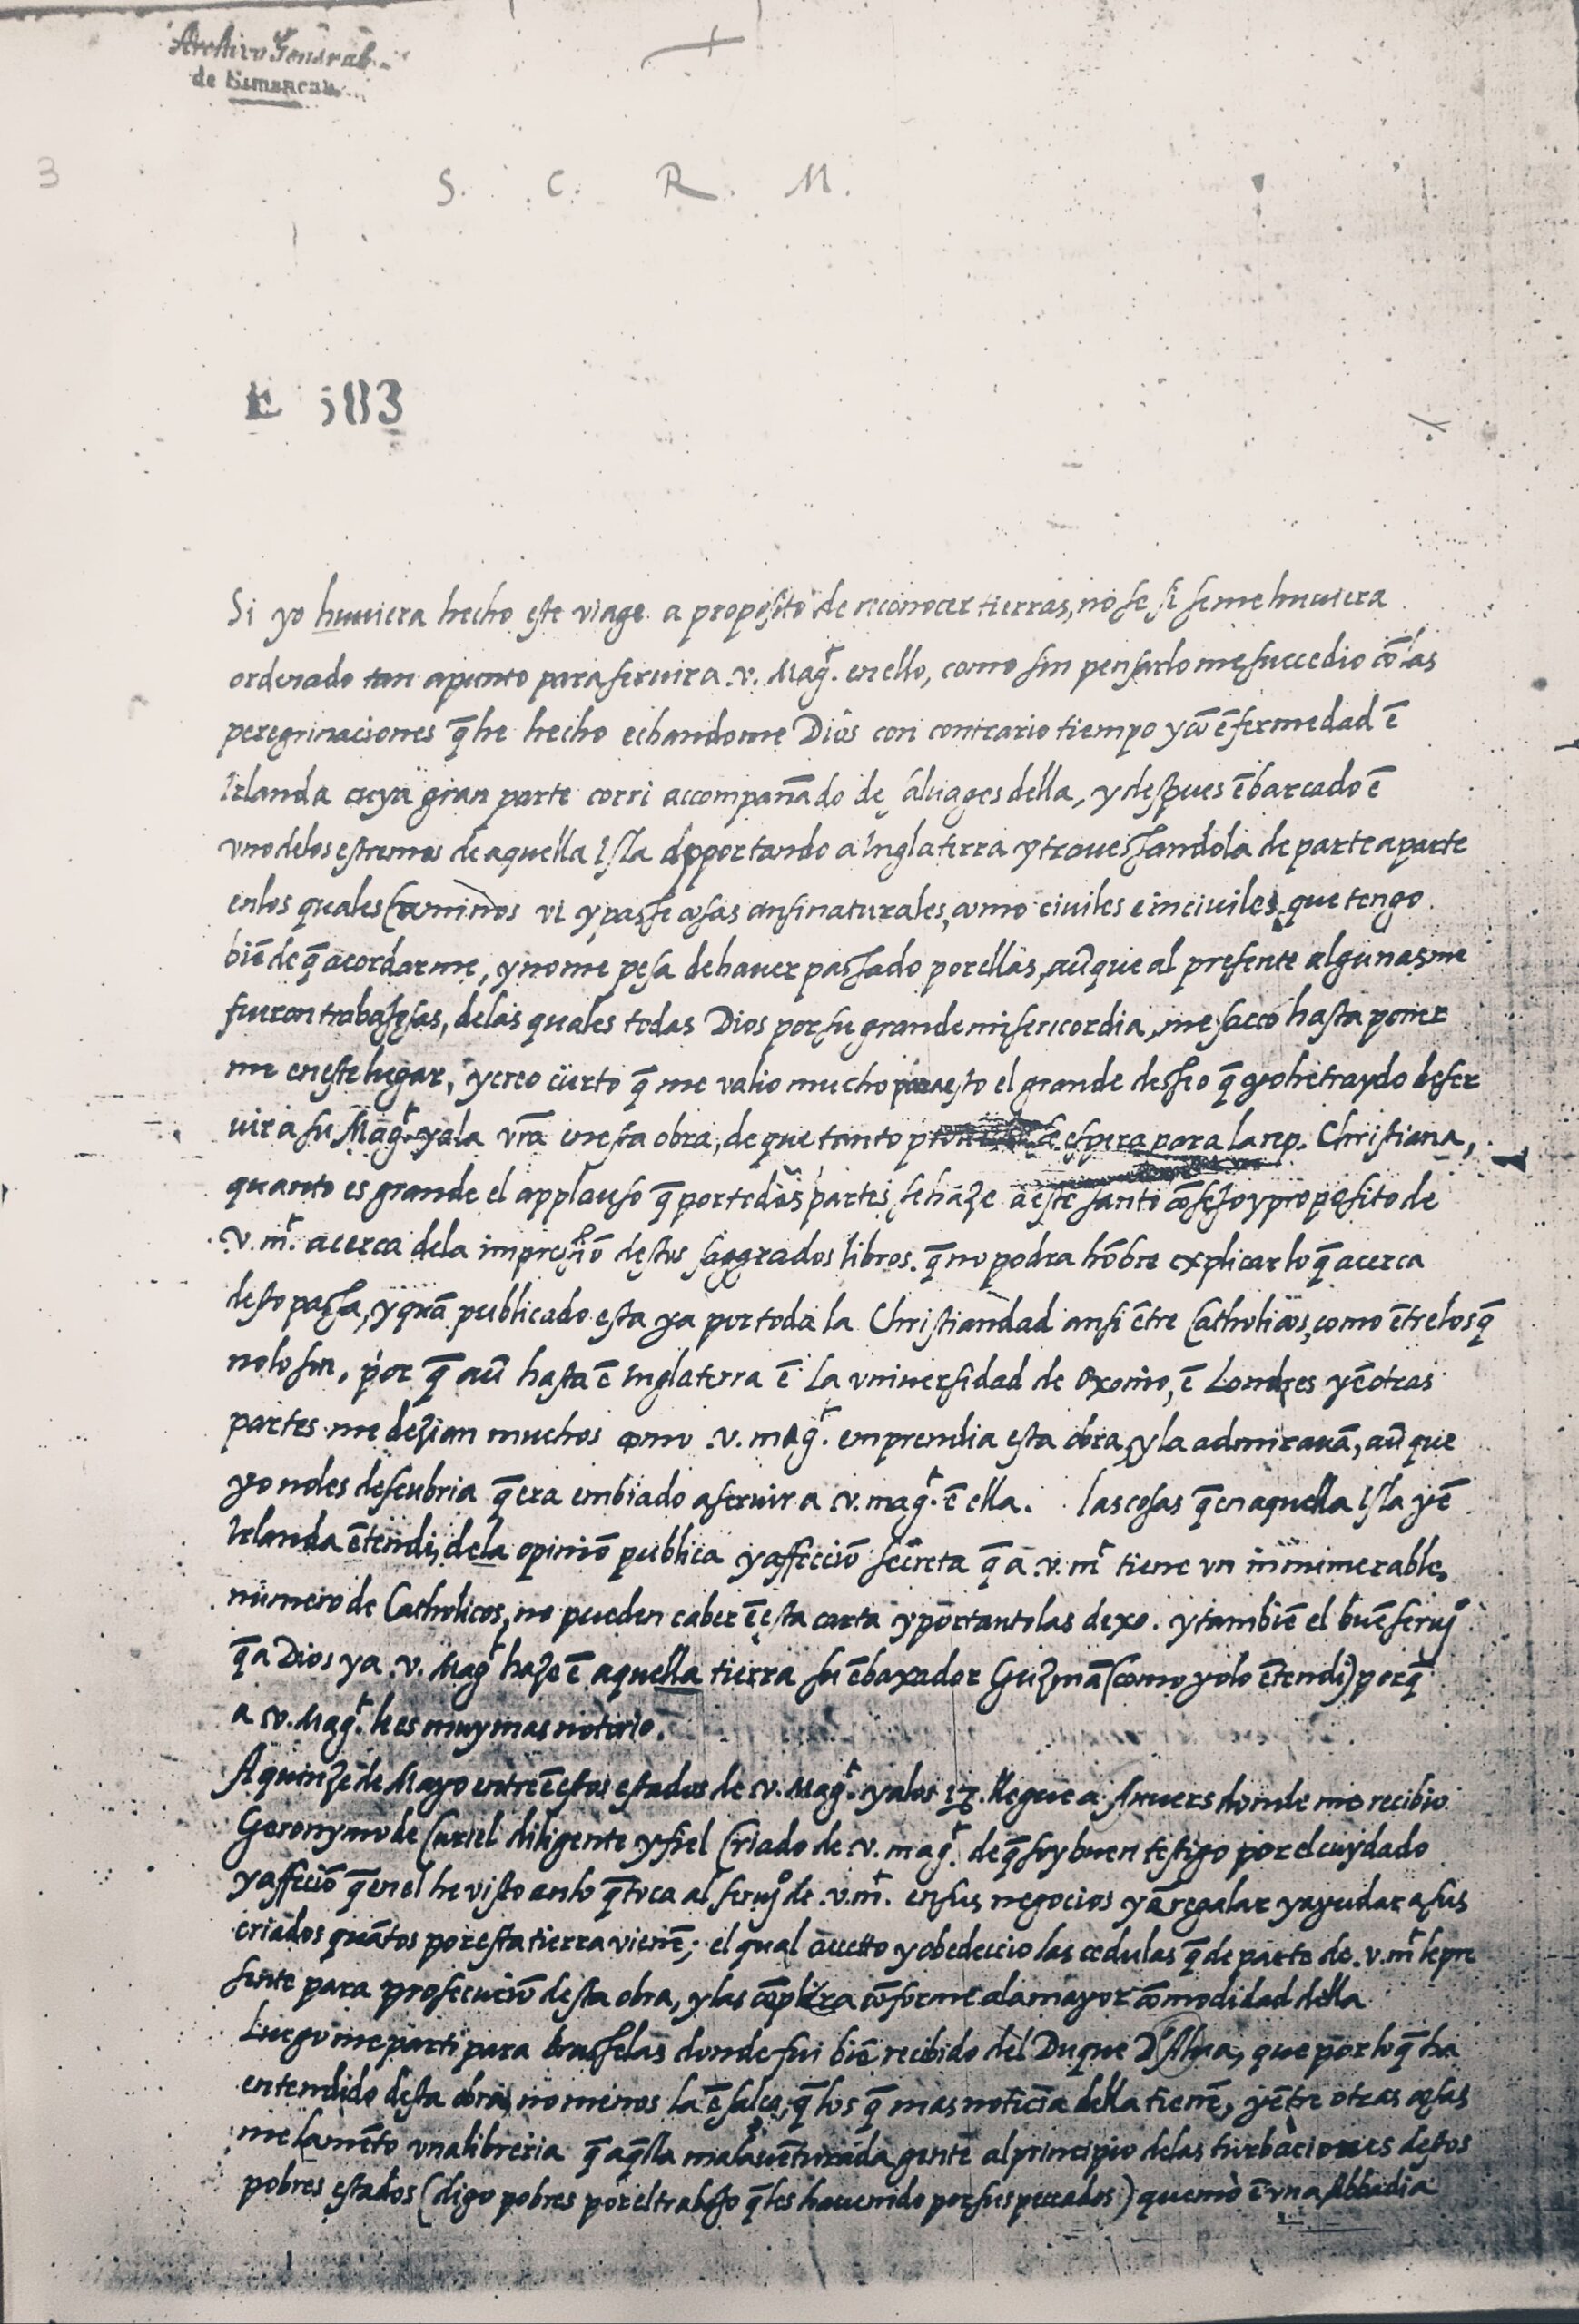 Archivo General
de Simancas
3
S. C. R. M.
E 583
Si yo huuiera hecho este viage a proposito de reconocer tierras, no se si se me huuiera
ordenado tan apunto para seruir a .v. Mag.t en ello, como sin pensarlo me succedio cō las
peregrinaciones q̄ he hecho echandome Dios con contrario tiempo y cō ēfermedad ē
Irlanda cuya gran parte corri accompañado de saluages della, y despues ēbarcado ē
vno delos estremos de aquella Isla aportando a Inglaterra y trauessandola de parte a parte
enlos quales Caminos vi y passe cosas ansi naturales, como ciuiles e inciuiles, que tengo
biē de q̄ acordarme, y no me pesa de hauer passado por ellas, aūque al presente algunas me
fueron trabajosas, delas quales todas Dios por su grande misericordia me sacco hasta poner
me en este lugar, y creo cierto q̄ me valio mucho para esto el grande desseo q̄ yo he traydo de ser
uir a su Mag.t y a la vr̄a en esta obra, de que tanto se espera para la rep. Christiana,
quanto es grande el applauso q̄ por todas partes se haze a este santo cōsejo y proposito de
.v. m.t acerca dela impressiō destos saggrados libros. q̄ no podra hōbre explicar lo q̄ acerca
desto passa, y quā publicado esta ya por toda la Christiandad ansi ētre Catholicos, como ētre los q̄
no lo son, por q̄ aū hasta ē Inglaterra ē la vniuersidad de Oxonio, ē Londres y ē otras
partes me dezian muchos como .v. mag.t emprendia esta obra, y la admirauā, aūque
yo no les descubria q̄ era embiado a seruir a .v. mag.t ē ella. las cosas q̄ en aquella Isla y ē
Irlanda ētendi, dela opiniō publica y affecciō secreta q̄ a .v. m.t tiene vn innumerable
numero de Catholicos, no pueden caber ē esta carta y por tanto las dexo. y tambiē el buē seruj.o
q̄ a Dios y a .v. Mag.t haze ē aquella tierra su ēbaxador Guzmā (como yo lo ētendi) porq̄
a .v. Mag.t le es muy mas notorio.
A quinze de Mayo entre ē estos estados de .v. Mag.t y a los 17. llegue a Anuers donde me recibio
Geronymo de Curiel diligente y fiel Criado de .v. mag.t de q̄ soy buen testigo por el cuydado
y affeciō q̄ en el he visto en lo q̄ toca al seruj.o de .v. m.t en sus negocios y ā regalar y ayudar a sus
criados quātos por esta tierra vienē; el qual accetto y obedeccio las cedulas q̄ de parte de .v. m.t le pre
sente para prosecuciō desta obra, y las cōplira cōforme a la mayor cōmodidad della
Luego me parti para brusselas donde fui biē recibido del Duque D'Alua, que por lo q̄ ha
entendido desta obra, no menos la ēsalça, q̄ los q̄ mas noticia della tienē, y ētre otras cosas
me lamēto vna libreria q̄ aq̄lla malauēturada gente al principio delas turbaciones destos
pobres estados (digo pobres por el trabajo q̄ les ha uenido por sus peccados) quemò ē vna Abbadia